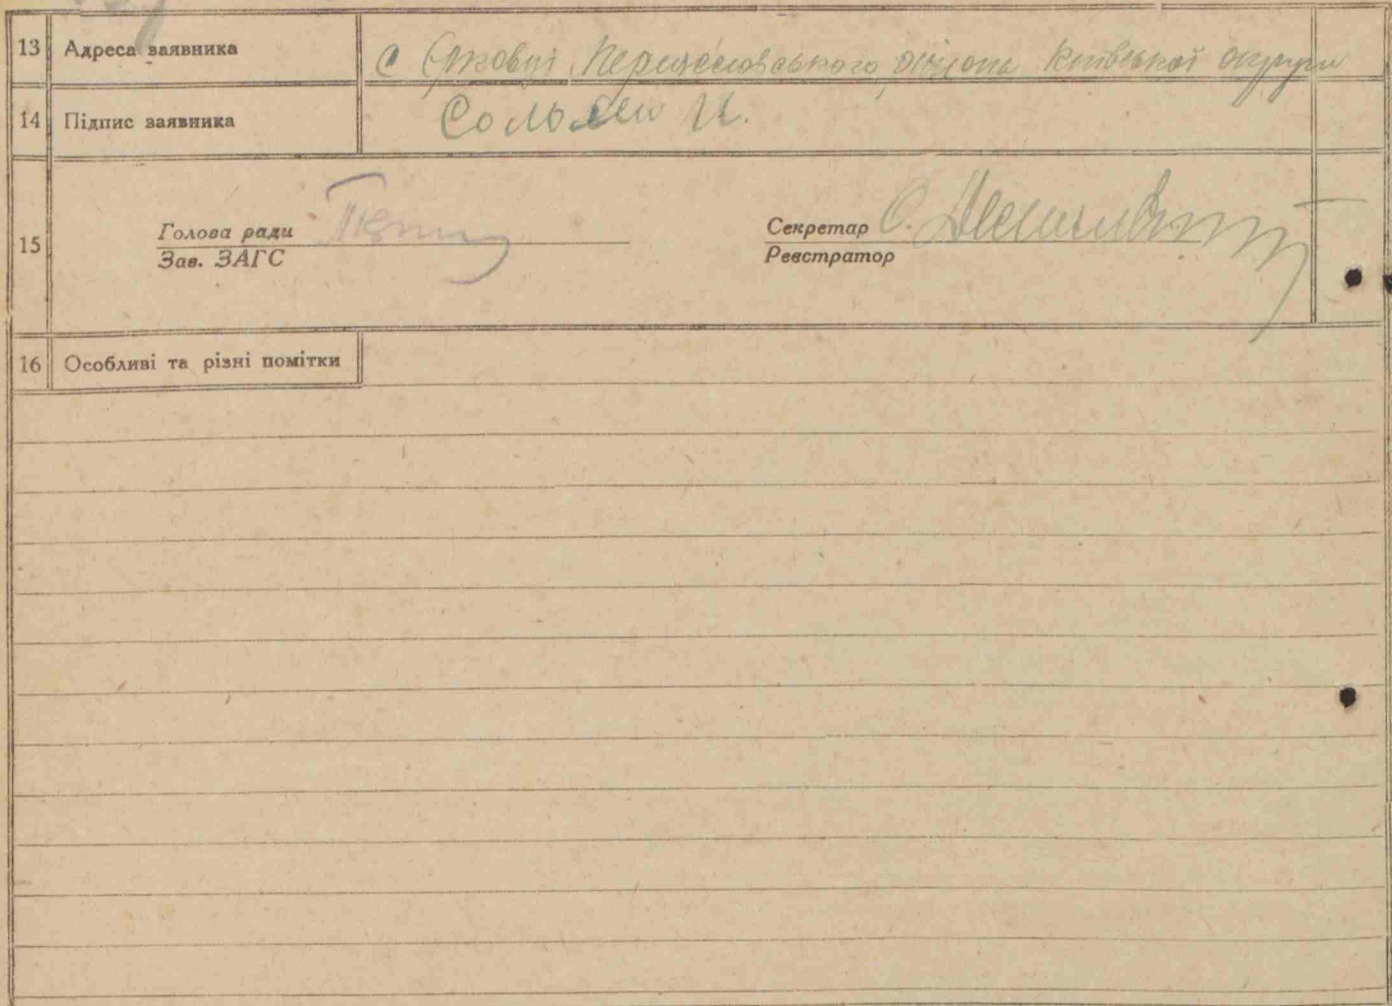 13 Адреса заявника с Єрковці Переяславського району Київської округи
14 Підпис заявника
15 Голова ради Секретар
Зав. ЗАГС Реєстратор
16 Особливі та різні помітки